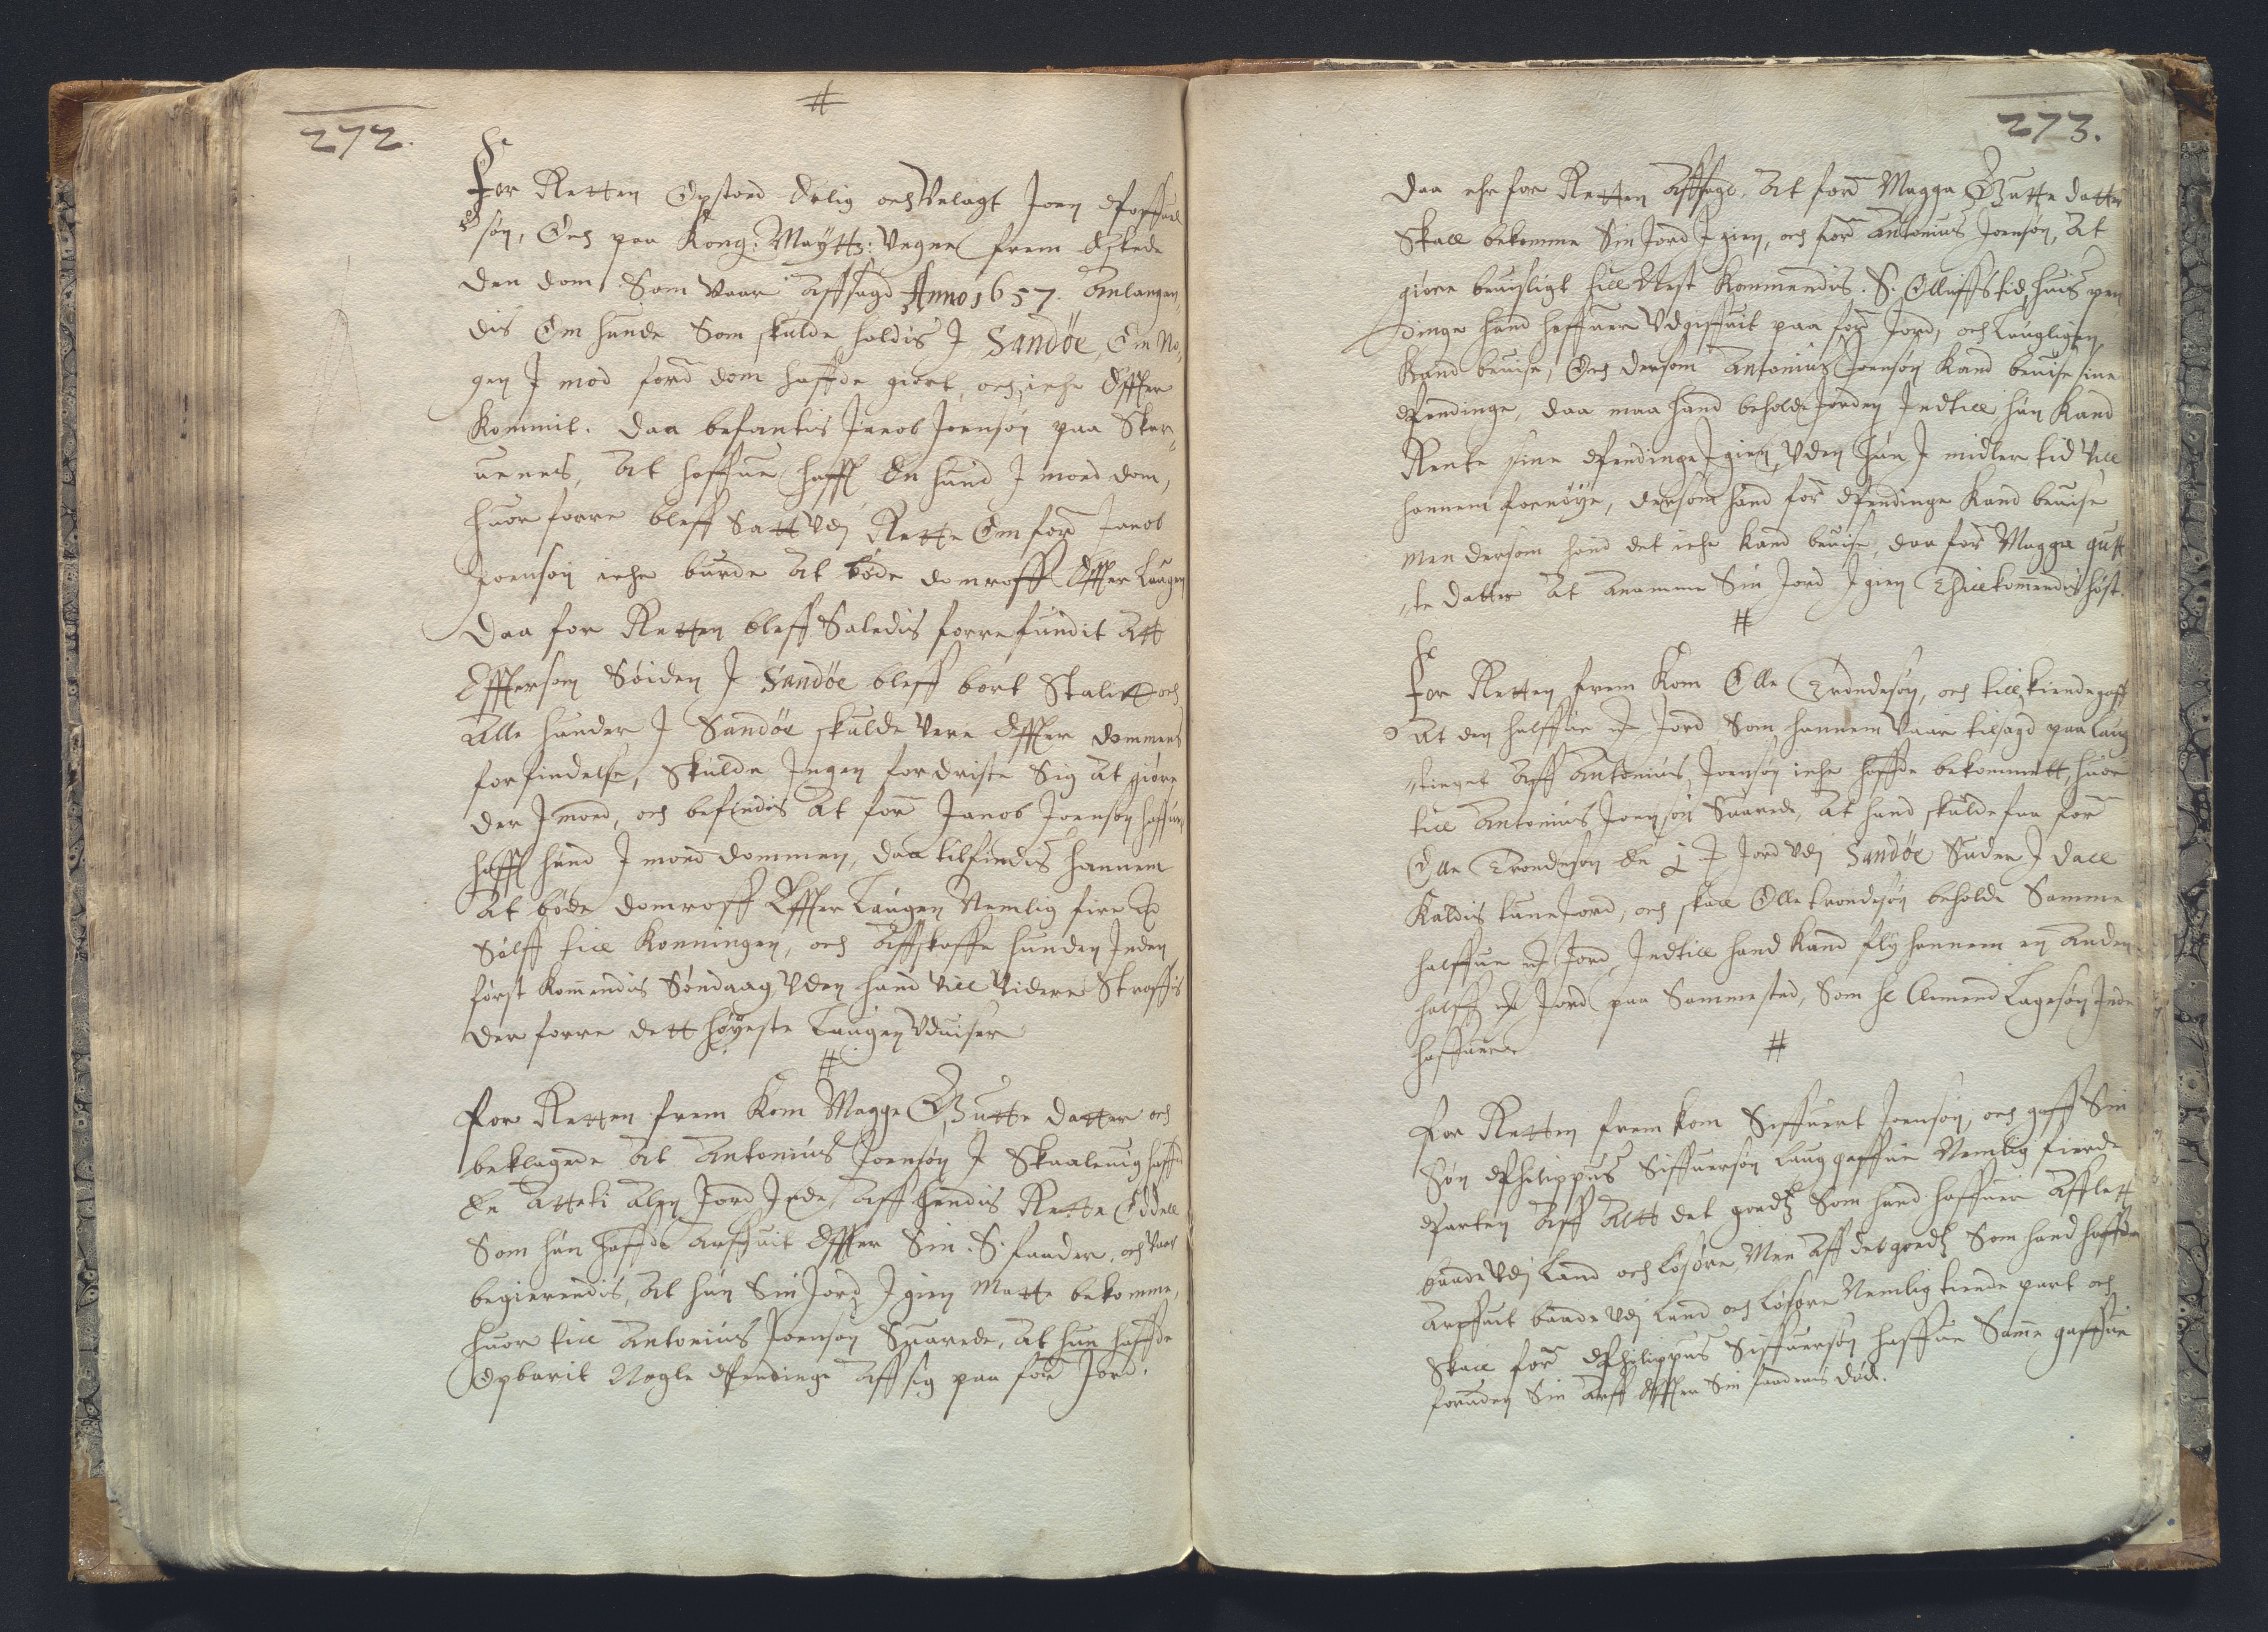 272.
For Retten Opstod Erlig och Velagt Joen
søn, Och paa Kong: Maytts: Vegne frem Eskede
den dom Som Vaar Affsagd Anno 1657. Anlangen
dis Om hunde Som skulde holdis J Sandöe, Om No-
gen J mod ford dom haffde giort, och iche Effter
Kommit. Daa befantis Jacob Joensøn paa Skar-
uenes, At haffue hafft En hund J moed dom,
huor forre bleff Satt Vdj Rette Om ford Jacob
Joensøn iche burde At böde domroff Effter Laugen
Daa for Retten bleff Saledis forrefundit Att
Efftersom Söiden J Sandöe bleff bort Stalitt och
Alle hunder J Sandöe skulde Vere Effter dommens
forfindelse, Skulde Jngen fordriste Sig At giøre
der J moed, och befindis At ford Jacob Joensøn haffuer
hafft hund J moed dommen, daa tilfindis hannem
At böde domroff Effter Laugen Nemlig fire
Sölff till Konningen, och Affskaffe hunden Jnden
først Kommendis Söndaag Vden hand Vill Videre Straffis
der forre dett høyeste Laugen Vduiser
For Retten frem Kom Magge Gutte datter och
beklagede At Antonius Joensøn J Skaaleuig haffde
En Atteti Alen Jord Jnde, Aff hendis Rette Oddell
Som hun haffde Arffuit Effter Sin S. faader, och Vaar
begierendis, At hun Sin Jord J gien Matte bekomme,
huor till Antonius Joensøn Suarede, At hun haffde
Opbarit Nogle Pendinge Aff sig paa ford Jord.
273.
Daa ehr for Retten Affsagd, At ford Magga Gutte datter
Skall bekomme Sin Jord J gien, och ford Antonius Joensøn, At
giøre beuisligt till Nest Kommendis S. Olluffs tid, huis pen
dinge hand haffuer Vdgiffuit paa ford Jord, och Laugligen
Kand beuise, Och dersom Antonius Joensøn Kand beuise sine
Pendinge, daa maa hand beholde Jorden Jndtill hun Kand
Rente sine Pendinge J gien, Vden hun J midler tid Vill
hannem fornöye, dersom hand ford Pendinge Kand beuise
Men dersom hand det iche Kand beuise, daa ford Magga Gut
te datter At Anamme Sin Jord J gien Thillkommendis höst.
For Retten frem Kom Olle Trondesøn, och tillkiendegaff
At den halffue Jord Som hannem Vaar tilsagd paa Laug
tinget Aff Antonius Joensøn iche haffde bekommett, huor
till Antonius Joensøn Suarede, At hand skulde faa ford
Olle Trondesøn En Jord Vdj Sandöe Suder J Dall
Kaldis tune Jord, och skall Olle trondesøn beholde Samme
halffue Jord, Jndtill hand Kand fly hannem en Anden
halff Jord paa Sammested, Som Hr Clemend Lagesøn Jnde
haffuer
For Retten frem kom Siffuert Joensøn, och gaff Sin
Søn Philippus Siffuersøn Lauggaffue Nemlig fierde
Parten Aff Altt det goedtz Som hand haffuer Afflett
baade Vdj Land och Løsøre, Men Aff det goedtz Som hand haffde
Arffuit baade Vdj Land och Løsøre Nemlig tiende part och
Skall ford Philippus Siffuersøn haffue Samme gaffue
foruden Sin Arff Effter Sin faaders död.